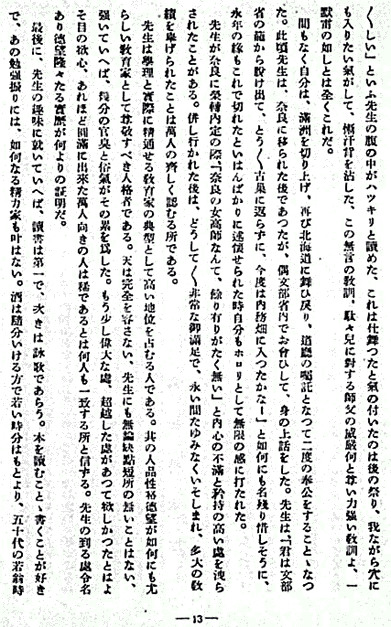 〱しい」といふ先生の腹の中がハツキリと讀めた、これは仕舞つたと氣の付いたのは後の祭り、我ながら穴に
も入りたい氣がして、慚汗背を沾した、この無言の敎訓、駄々兒に對する師父の威嚴何と尊い力强い敎訓よ、一
默雷の如しとは全くこれだ。
間もなく自分は、滿洲を切り上げ、再び北海道に舞ひ戾り、道廳の囑託となつて二度の奉公をすることゝなつ
た。此頃先生は、奈良に移られた後であつたが、偶文部省內でお會ひして、身の上話をした。先生は『君は文部
省の箱から脫け出て、とう〱古巢に返らずに、今度は內務畑に入つたかなー』と如何にも名殘り惜しそうに、
永年の緣もこれで切れたといはんばかりに述懷せられた時自分もホロリとして無限の感に打たれた。
先生が奈良に榮轉內定の際『奈良の女高師なんて、餘り有りがたく無い』と內心の不滿と矜持の高い處を洩ら
されたことがある。併し行かれた後は、どうして〱非常な御滿足で、永い間たゆみなくいそしまれ、多大の敎
績を擧げられたことは萬人の齊しく認むる所である。
先生は學理と實際に精通せる敎育家の典型として高い地位を占むる人である。其の人品性格德望が如何にも尤
らしい敎育家として尊敬すべき人格者である。天は完全を容さない、先生にも無論缺點短所の無いことはない、
强いていへば、幾分の官臭と俗氣がその累を爲した。もう少し偉大な處、超越した處があつて欲しかつたとはよ
そ目の欲心、あれほど圓滿に出來た萬人向きの人は稀であるとは何人も一致する所と信ずる。先生の到る處令名
あり德望隆々たる實歷が何よりの証明だ。
最後に、先生の趣味に就いていへば、讀書は第一で、次きは詠歌であらう。本を讀むことゝ書くことが好き
で、あの勉强振りには、如何なる精力家も叶はない。酒は隨分いける方で若い時分はもとより、五十代の若翁時
― 13 ―